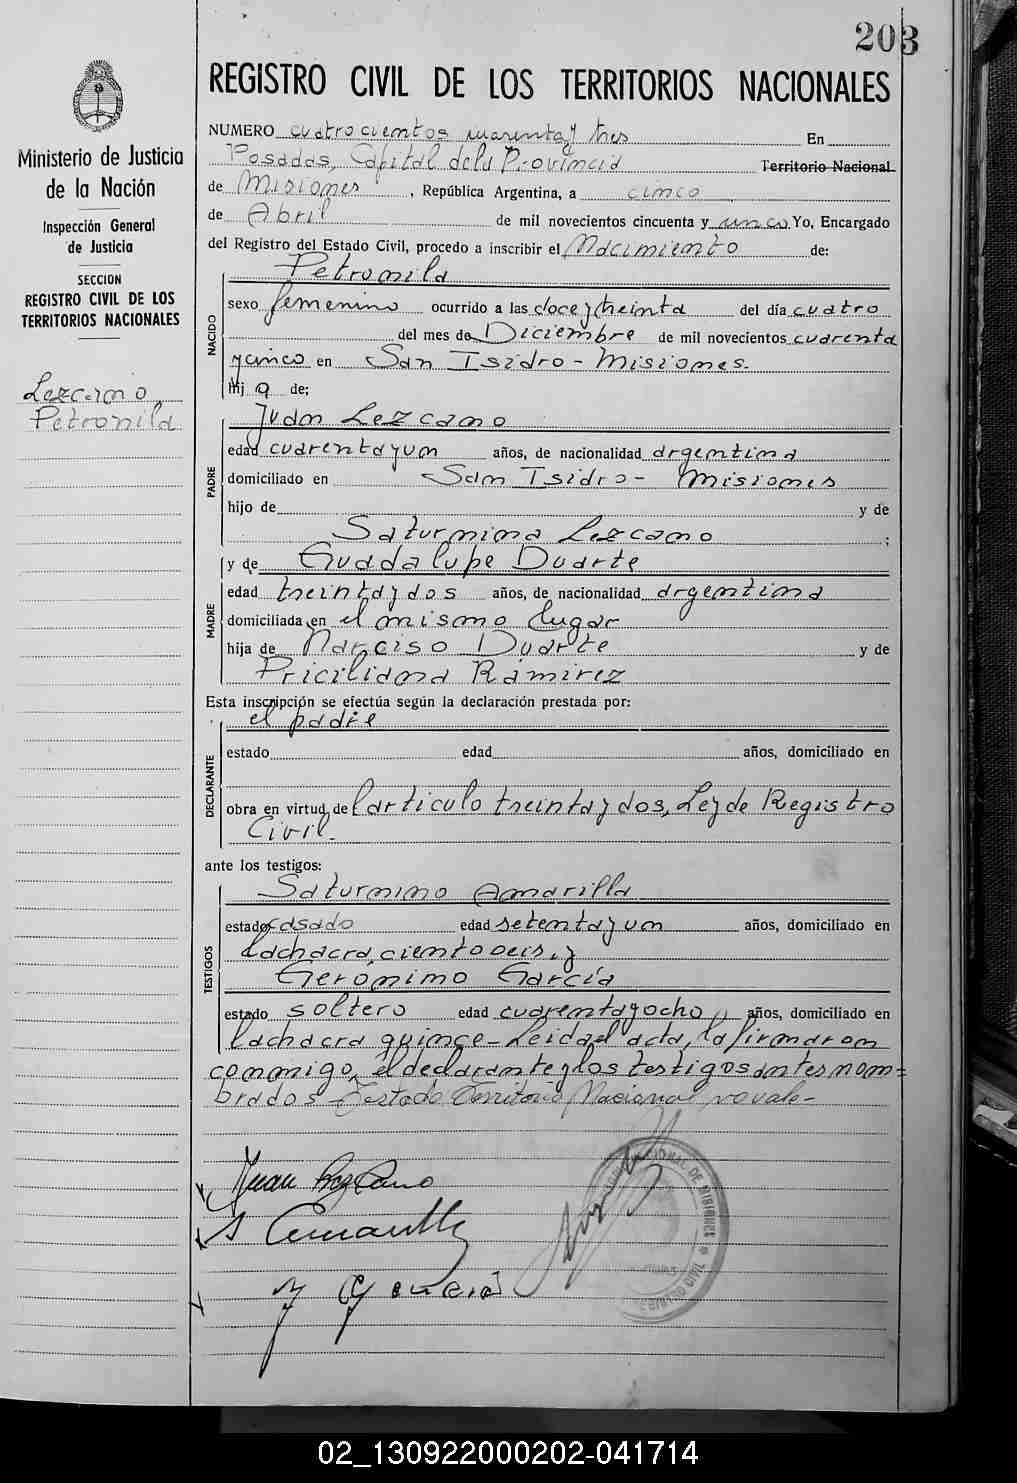 203
REGISTRO CIVIL DE LOS TERRITORIOS NACIONALES
Ministerio de Justicia
de la Nación
Inspección General
de Justicia
SECCION
REGISTRO CIVIL DE LOS
TERRITORIOS NACIONALES
Lezcano
Petronila
NUMERO cuatrocientos cuarenta y tres En
Posadas, Capital de la Provincia Territorio Nacional
de Misiones, República Argentina, a cinco
de Abril de mil novecientos cincuenta y unco Yo, Encargado
del Registro del Estado Civil, procedo a inscribir el Nacimiento de:
NACIDO
Petronila
sexo femenino ocurrido a las doce y treinta del día cuatro
del mes de Diciembre de mil novecientos cuarenta
y cinco en San Isidro - Misiones.
Hij a de:
PADRE
Juan Lezcano
edad cuarenta y un años, de nacionalidad argentina
domiciliado en San Isidro - Misiones
hijo de y de
Saturnina Lezcano ;
MADRE
y de Guadalupe Duarte
edad treinta y dos años, de nacionalidad argentina
domiciliada en el mismo lugar
hija de Narciso Duarte y de
Priciliana Ramirez
Esta inscripción se efectúa según la declaración prestada por:
DECLARANTE
el padre
estado edad años, domiciliado en
obra en virtud de l articulo treinta y dos, Ley de Registro
Civil.
ante los testigos:
TESTIGOS
Saturnino Amarilla
estado casado edad setenta y un años, domiciliado en
la chacra, ciento seis, y
Gerónimo García
estado soltero edad cuarenta y ocho años, domiciliado en
la chacra quince - Leida el acta, la firmaron
conmigo, el declarante y los testigos antes nom=
brados - Testado Territorio Nacional no vale -
Juan Lezcano
S Amarilla
J García
REGISTRO CIVIL
02_130922000202-041714